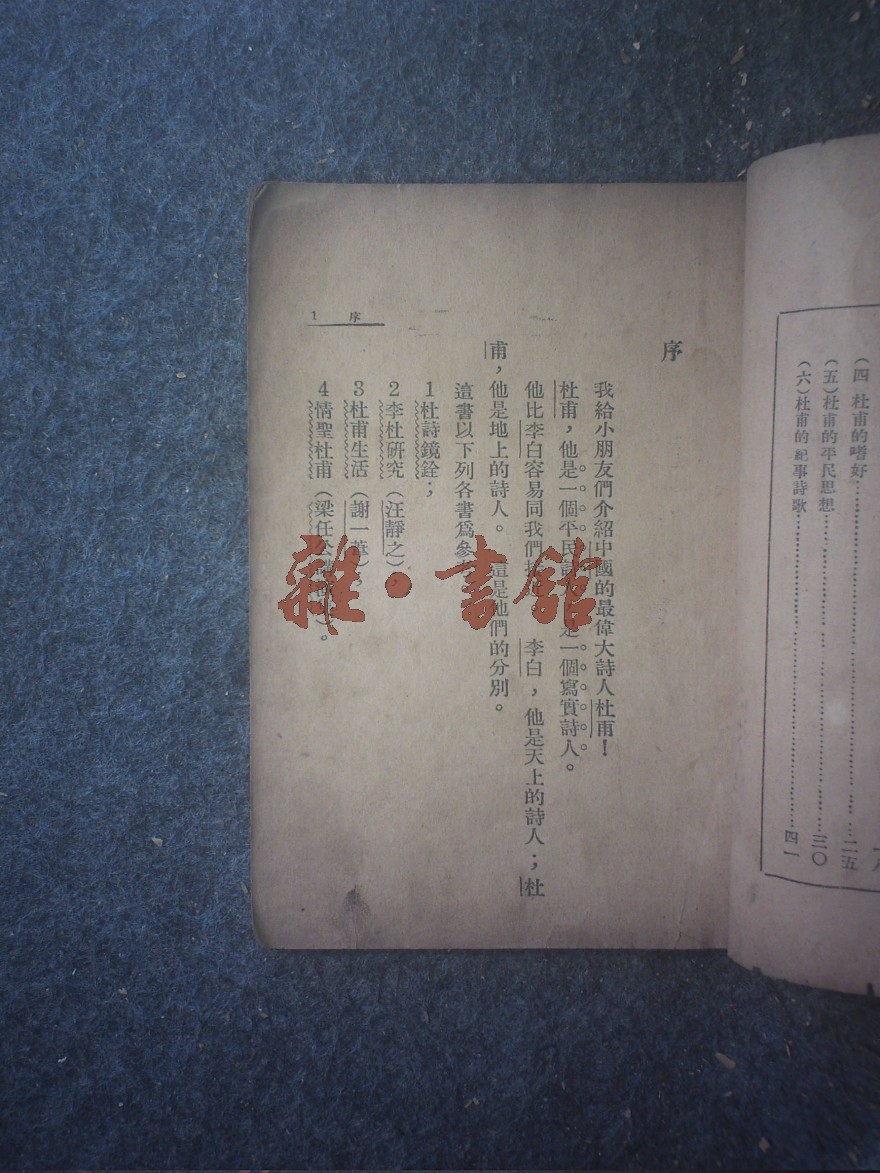 (四 杜甫的嗜好……二五
(五)杜甫的平民思想……三〇
(六)杜甫的紀事詩歌……四一
序
我給小朋友們介紹中國的最偉大詩人杜甫!
杜甫,他是一個平民詩 是一個寫實詩人。
他比李白容易同我們 李白,他是天上的詩人;杜
甫,他是地上的詩人。這是他們的分別。
這書以下列各書爲參
1杜詩鏡銓;
2李杜研究(汪靜之)
3杜甫生活(謝一葦)
4情聖杜甫(梁任公 )。
序 1
雜·書館